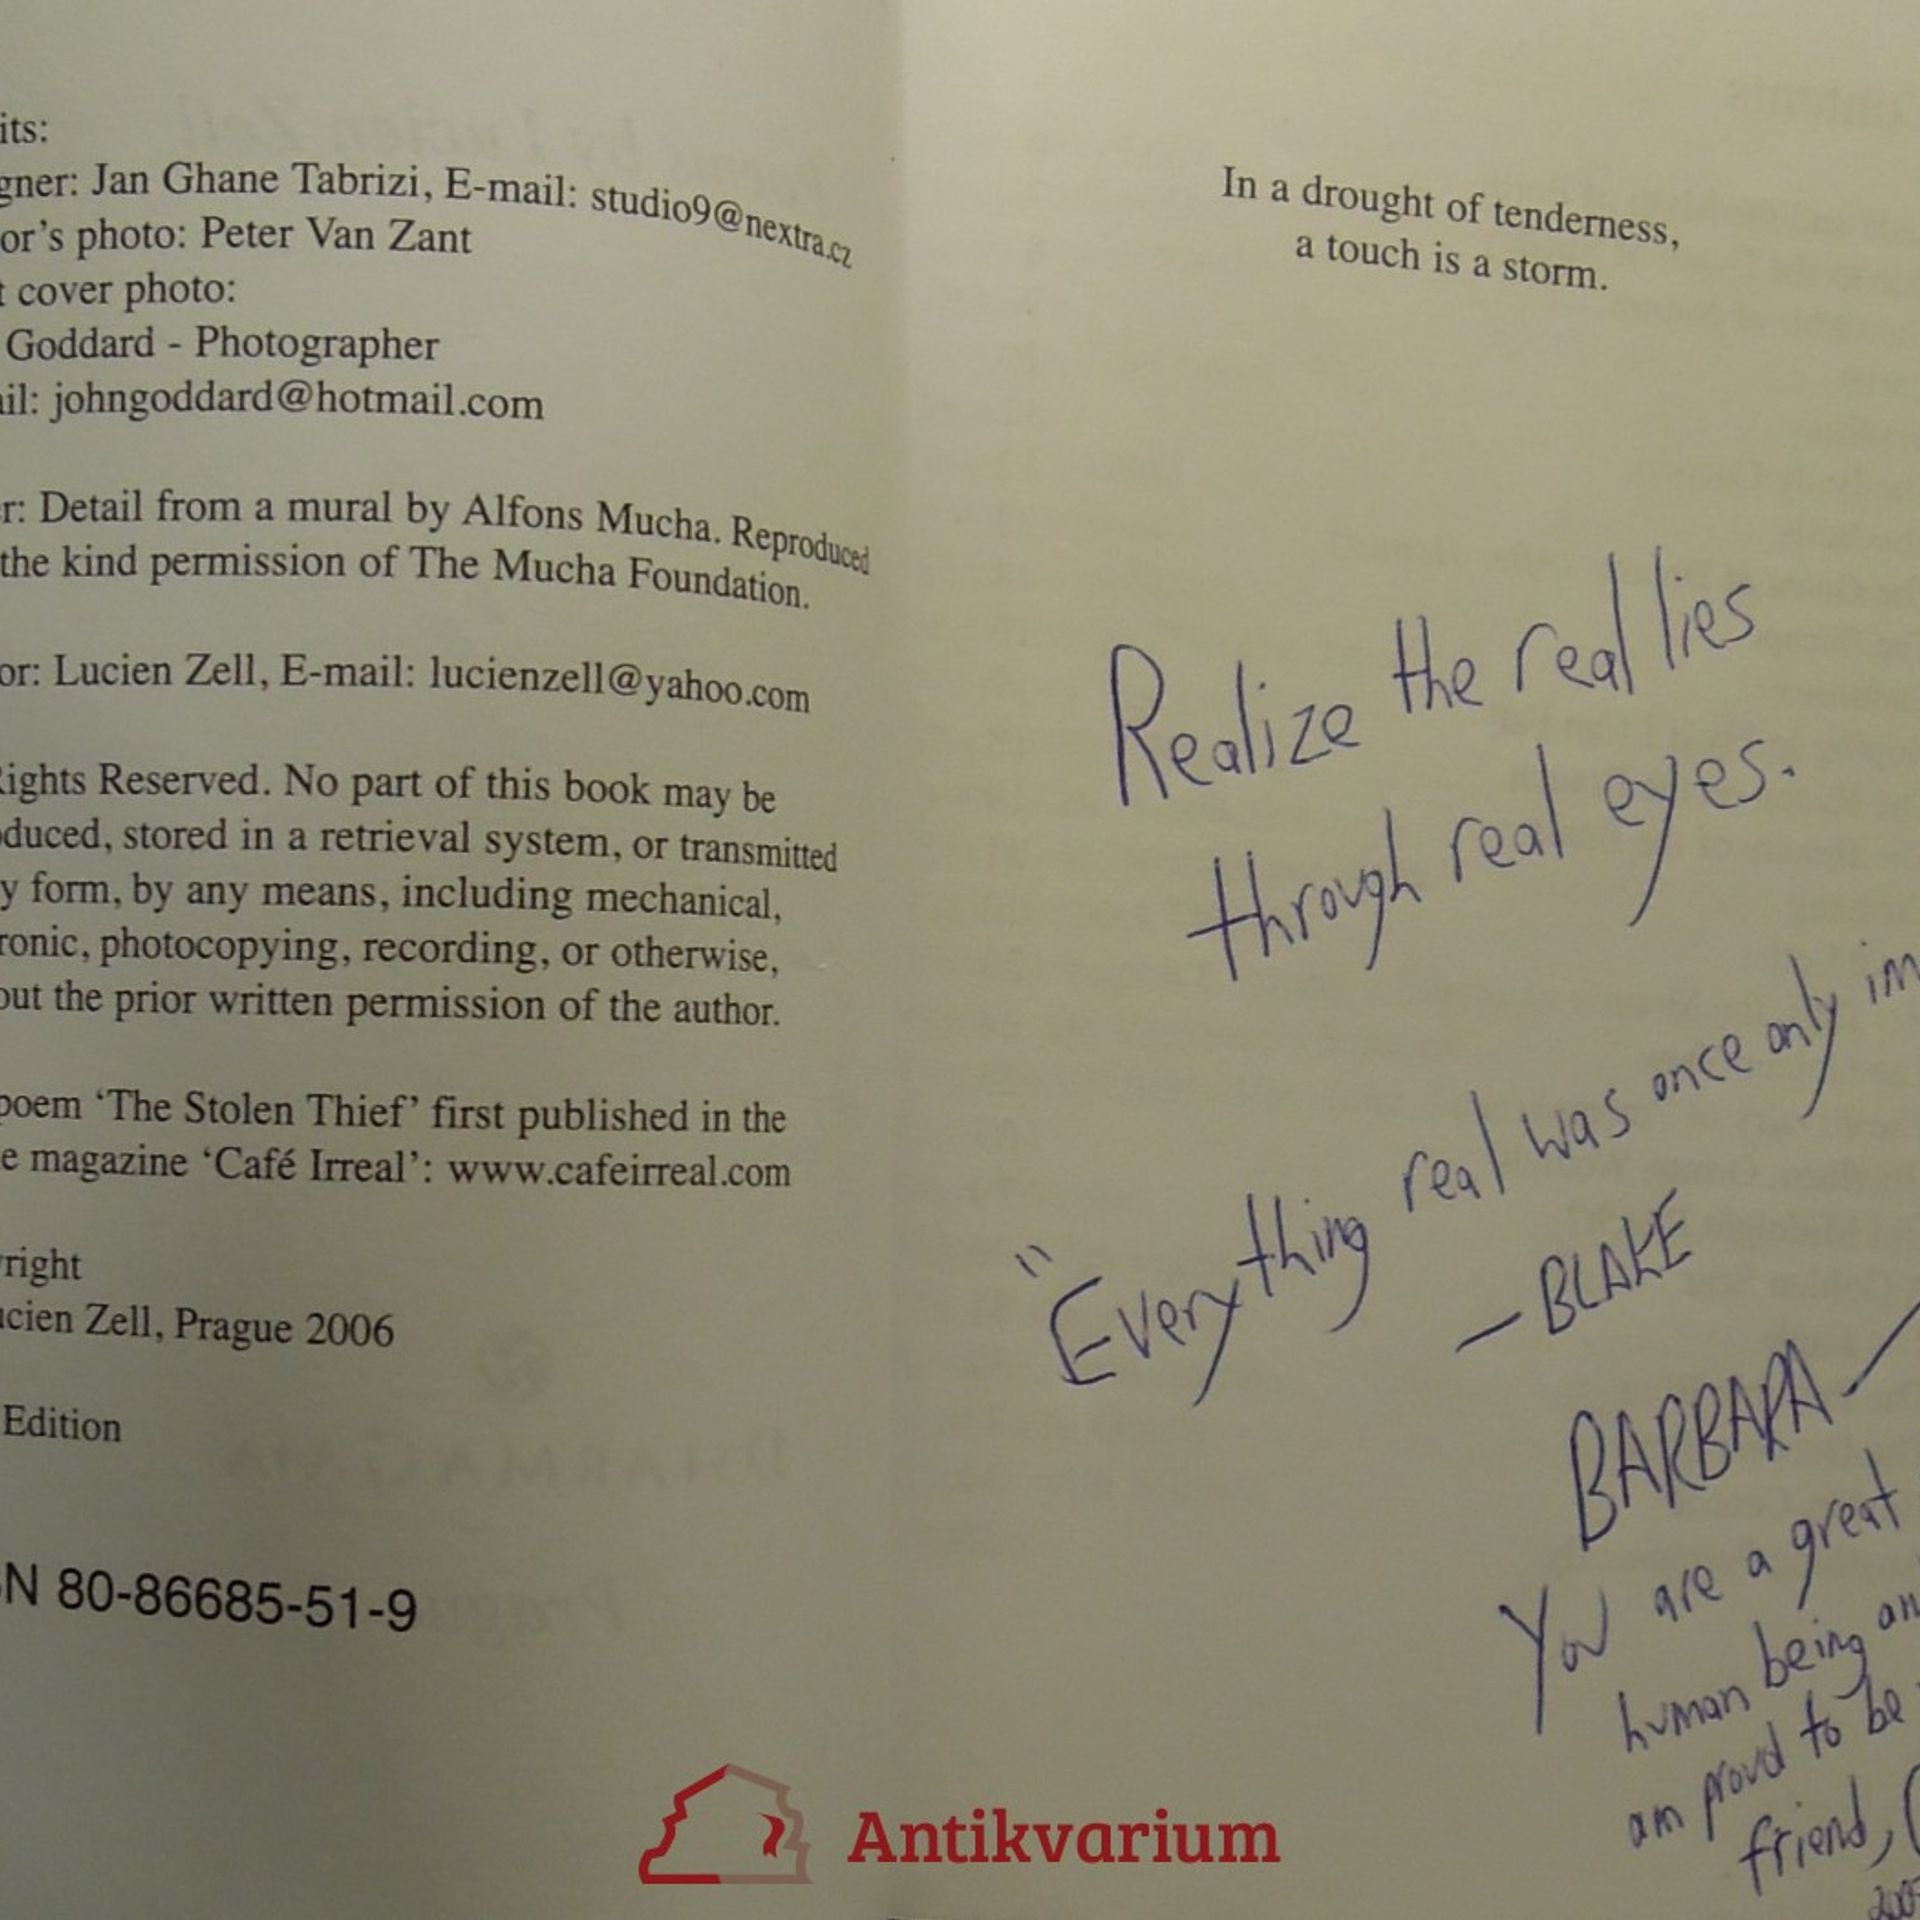 its:
gner: Jan Ghane Tabrizi, E-mail: studio9@nextra.cz
or's photo: Peter Van Zant
t cover photo:
Goddard - Photographer
ail: johngoddard@hotmail.com
r: Detail from a mural by Alfons Mucha. Reproduced
the kind permission of The Mucha Foundation.
or: Lucien Zell, E-mail: lucienzell@yahoo.com
Rights Reserved. No part of this book may be
oduced, stored in a retrieval system, or transmitted
y form, by any means, including mechanical,
ronic, photocopying, recording, or otherwise,
out the prior written permission of the author.
poem ‘The Stolen Thief’ first published in the
e magazine ‘Café Irreal’: www.cafeirreal.com
right
ucien Zell, Prague 2006
Edition
N 80-86685-51-9
In a drought of tenderness,
a touch is a storm.
Realize the real lies
through real eyes.
"Everything real was once only im
— BLAKE
BARBARA —
You are a great
human being an
am proud to be
friend,
Antikvarium